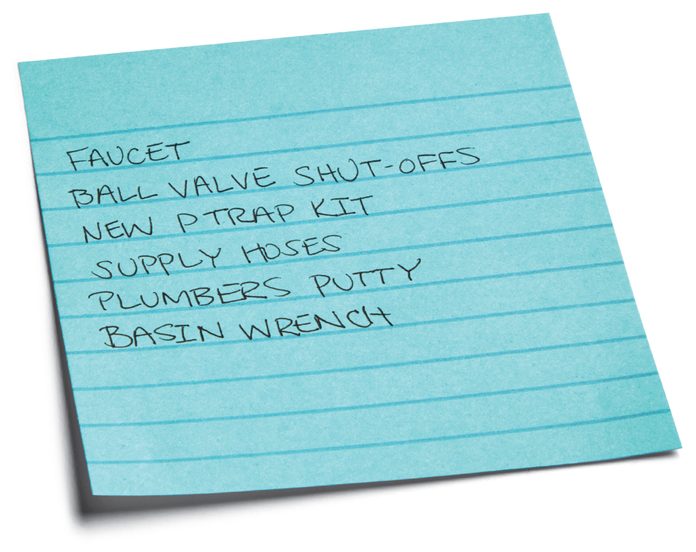 FAUCET
BALL VALVE SHUT-OFFS
NEW P TRAP KIT
SUPPLY HOSES
PLUMBERS PUTTY
BASIN WRENCH